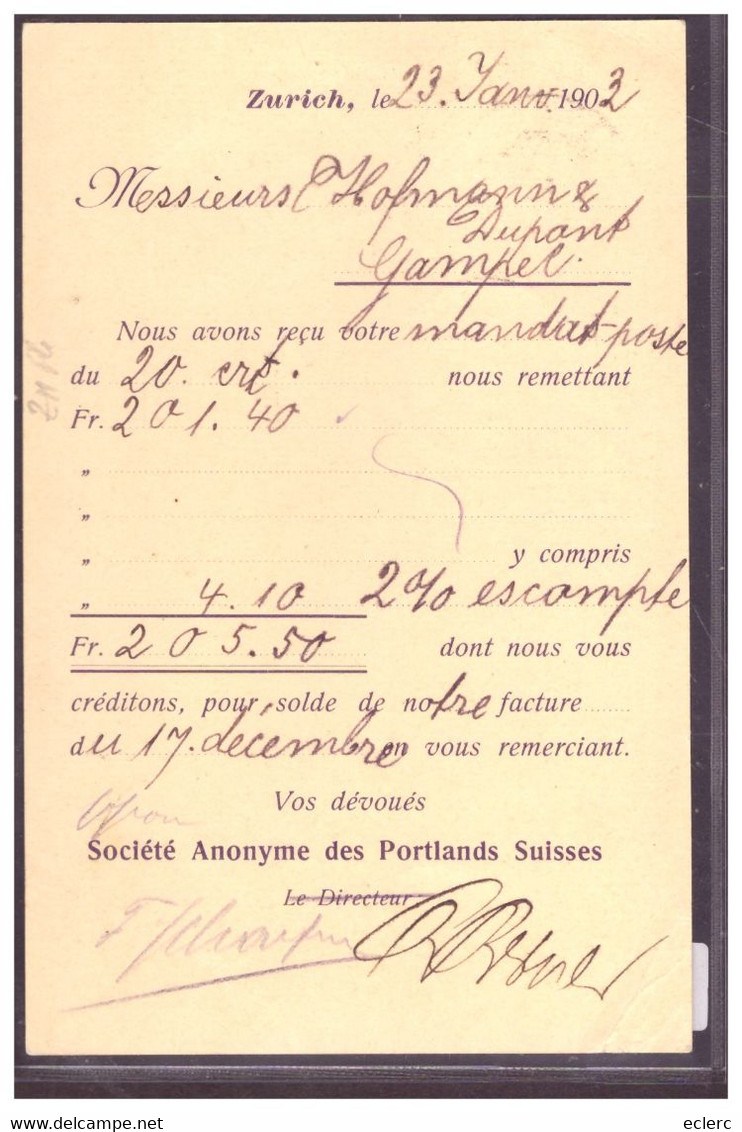 Zurich, le 23. Janv. 1903
Messieurs Hofmann &
Dupont
Gampel.
Nous avons reçu votre mandat-poste
du 20. crt. nous remettant
Fr. 201.40
„
„
„ y compris
„ 4.10 2% escompte
Fr. 205.50 dont nous vous
créditons, pour solde de notre facture
du 17. décembre en vous remerciant.
Vos dévoués
Société Anonyme des Portlands Suisses
Le Directeur
eclerc